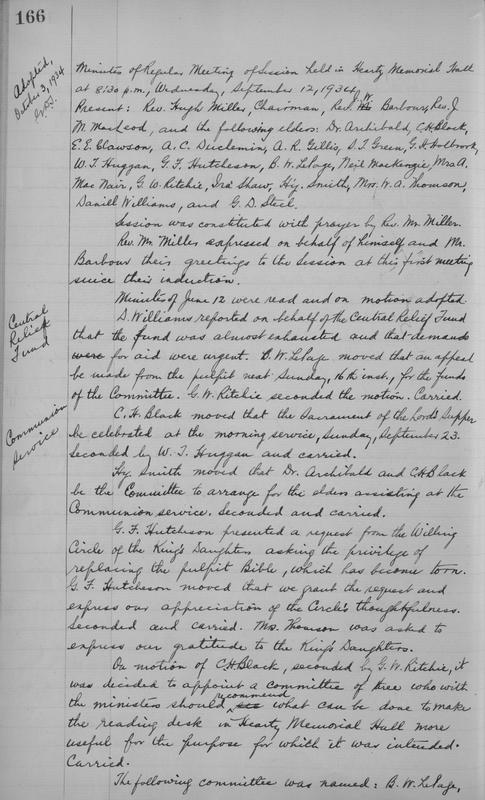 166
Adopted,
October 3, 1934
Minutes of Regular Meeting of Session held in Hearty Memorial Hall
at 8:30 p.m., Wednesday, September 12, 1934.
Present: Rev. Hugh Miller, Chairman, Rev. W. Barbour, Rev. J.
M. MacLeod, and the following elders: Dr. Archibald, C.H. Black,
E.E. Clawson, A.C. Duchemin, A.R. Gillis, D.J. Green, G.H. Holbrook,
W.T. Huggan, G.F. Hutcheson, B.W. LePage, Neil MacKenzie, Mrs. A.
MacNair, G.W. Ritchie, Ira Shaw, Hy. Smith, Mrs. W.A. Thomson,
Daniel Williams, and G.D. Steel.
Session was constituted with prayer by Rev. Mr. Miller.
Rev. Mr. Miller expressed on behalf of himself and Mr.
Barbour their greetings to the Session at this first meeting
since their induction.
Minutes of June 12 were read and on motion adopted.
Central
Relief
Fund
D. Williams reported on behalf of the Central Relief Fund
that the fund was almost exhausted and that demands
were for aid were urgent. B.W. LePage moved that an appeal
be made from the pulpit next Sunday, 16th inst., for the funds
of the Committee. G.W. Ritchie seconded the motion. Carried.
Communion
Service
C.H. Black moved that the Sacrament of the Lord's Supper
be celebrated at the morning service, Sunday, September 23.
Seconded by W.T. Huggan and carried.
Hy. Smith moved that Dr. Archibald and C.H. Black
be the Committee to arrange for the elders assisting at the
Communion service. Seconded and carried.
G.F. Hutcheson presented a request from the Willing
Circle of the King's Daughters asking the privilege of
replacing the pulpit Bible, which has become torn.
G.F. Hutcheson moved that we grant the request and
express our appreciation of the Circle's thoughtfulness.
Seconded and carried. Mrs. Thomson was asked to
express our gratitude to the King's Daughters.
On motion of C.H. Black, seconded by G.W. Ritchie, it
was decided to appoint a committee of three who with
the ministers should recommend what can be done to make
the reading desk in Hearty Memorial Hall more
useful for the purpose for which it was intended.
Carried.
The following committee was named: B.W. LePage,